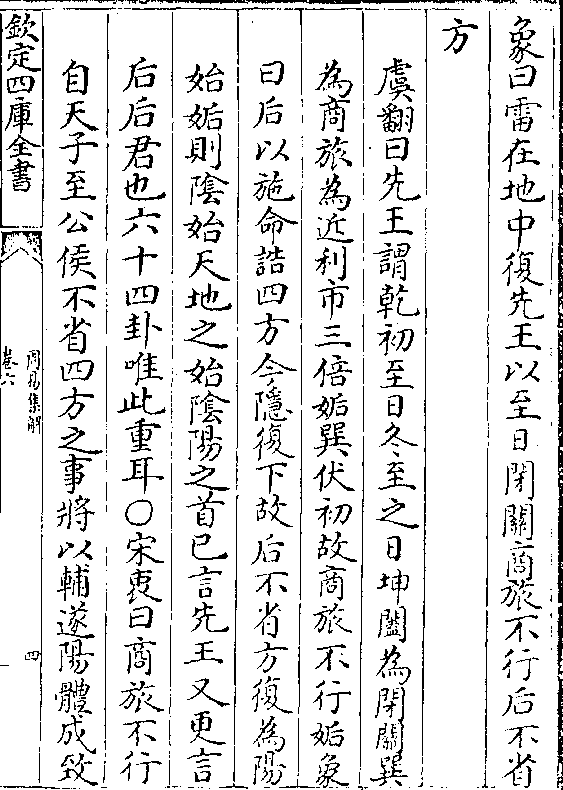 象曰雷在地中復先王以至日閉關商旅不行后不省
方
虞翻曰先王謂乾初至日冬至之日坤闔為閉關巽
為商旅為近利市三倍姤巽伏初故商旅不行姤象
曰后以施命誥四方今隱復下故后不省方復為陽
始姤則陰始天地之始陰陽之首已言先王又更言
后后君也六十四卦唯此重耳○宋衷曰商旅不行
自天子至公侯不省四方之事將以輔遂陽體成致
欽定四庫全書
周易集解
卷六
四